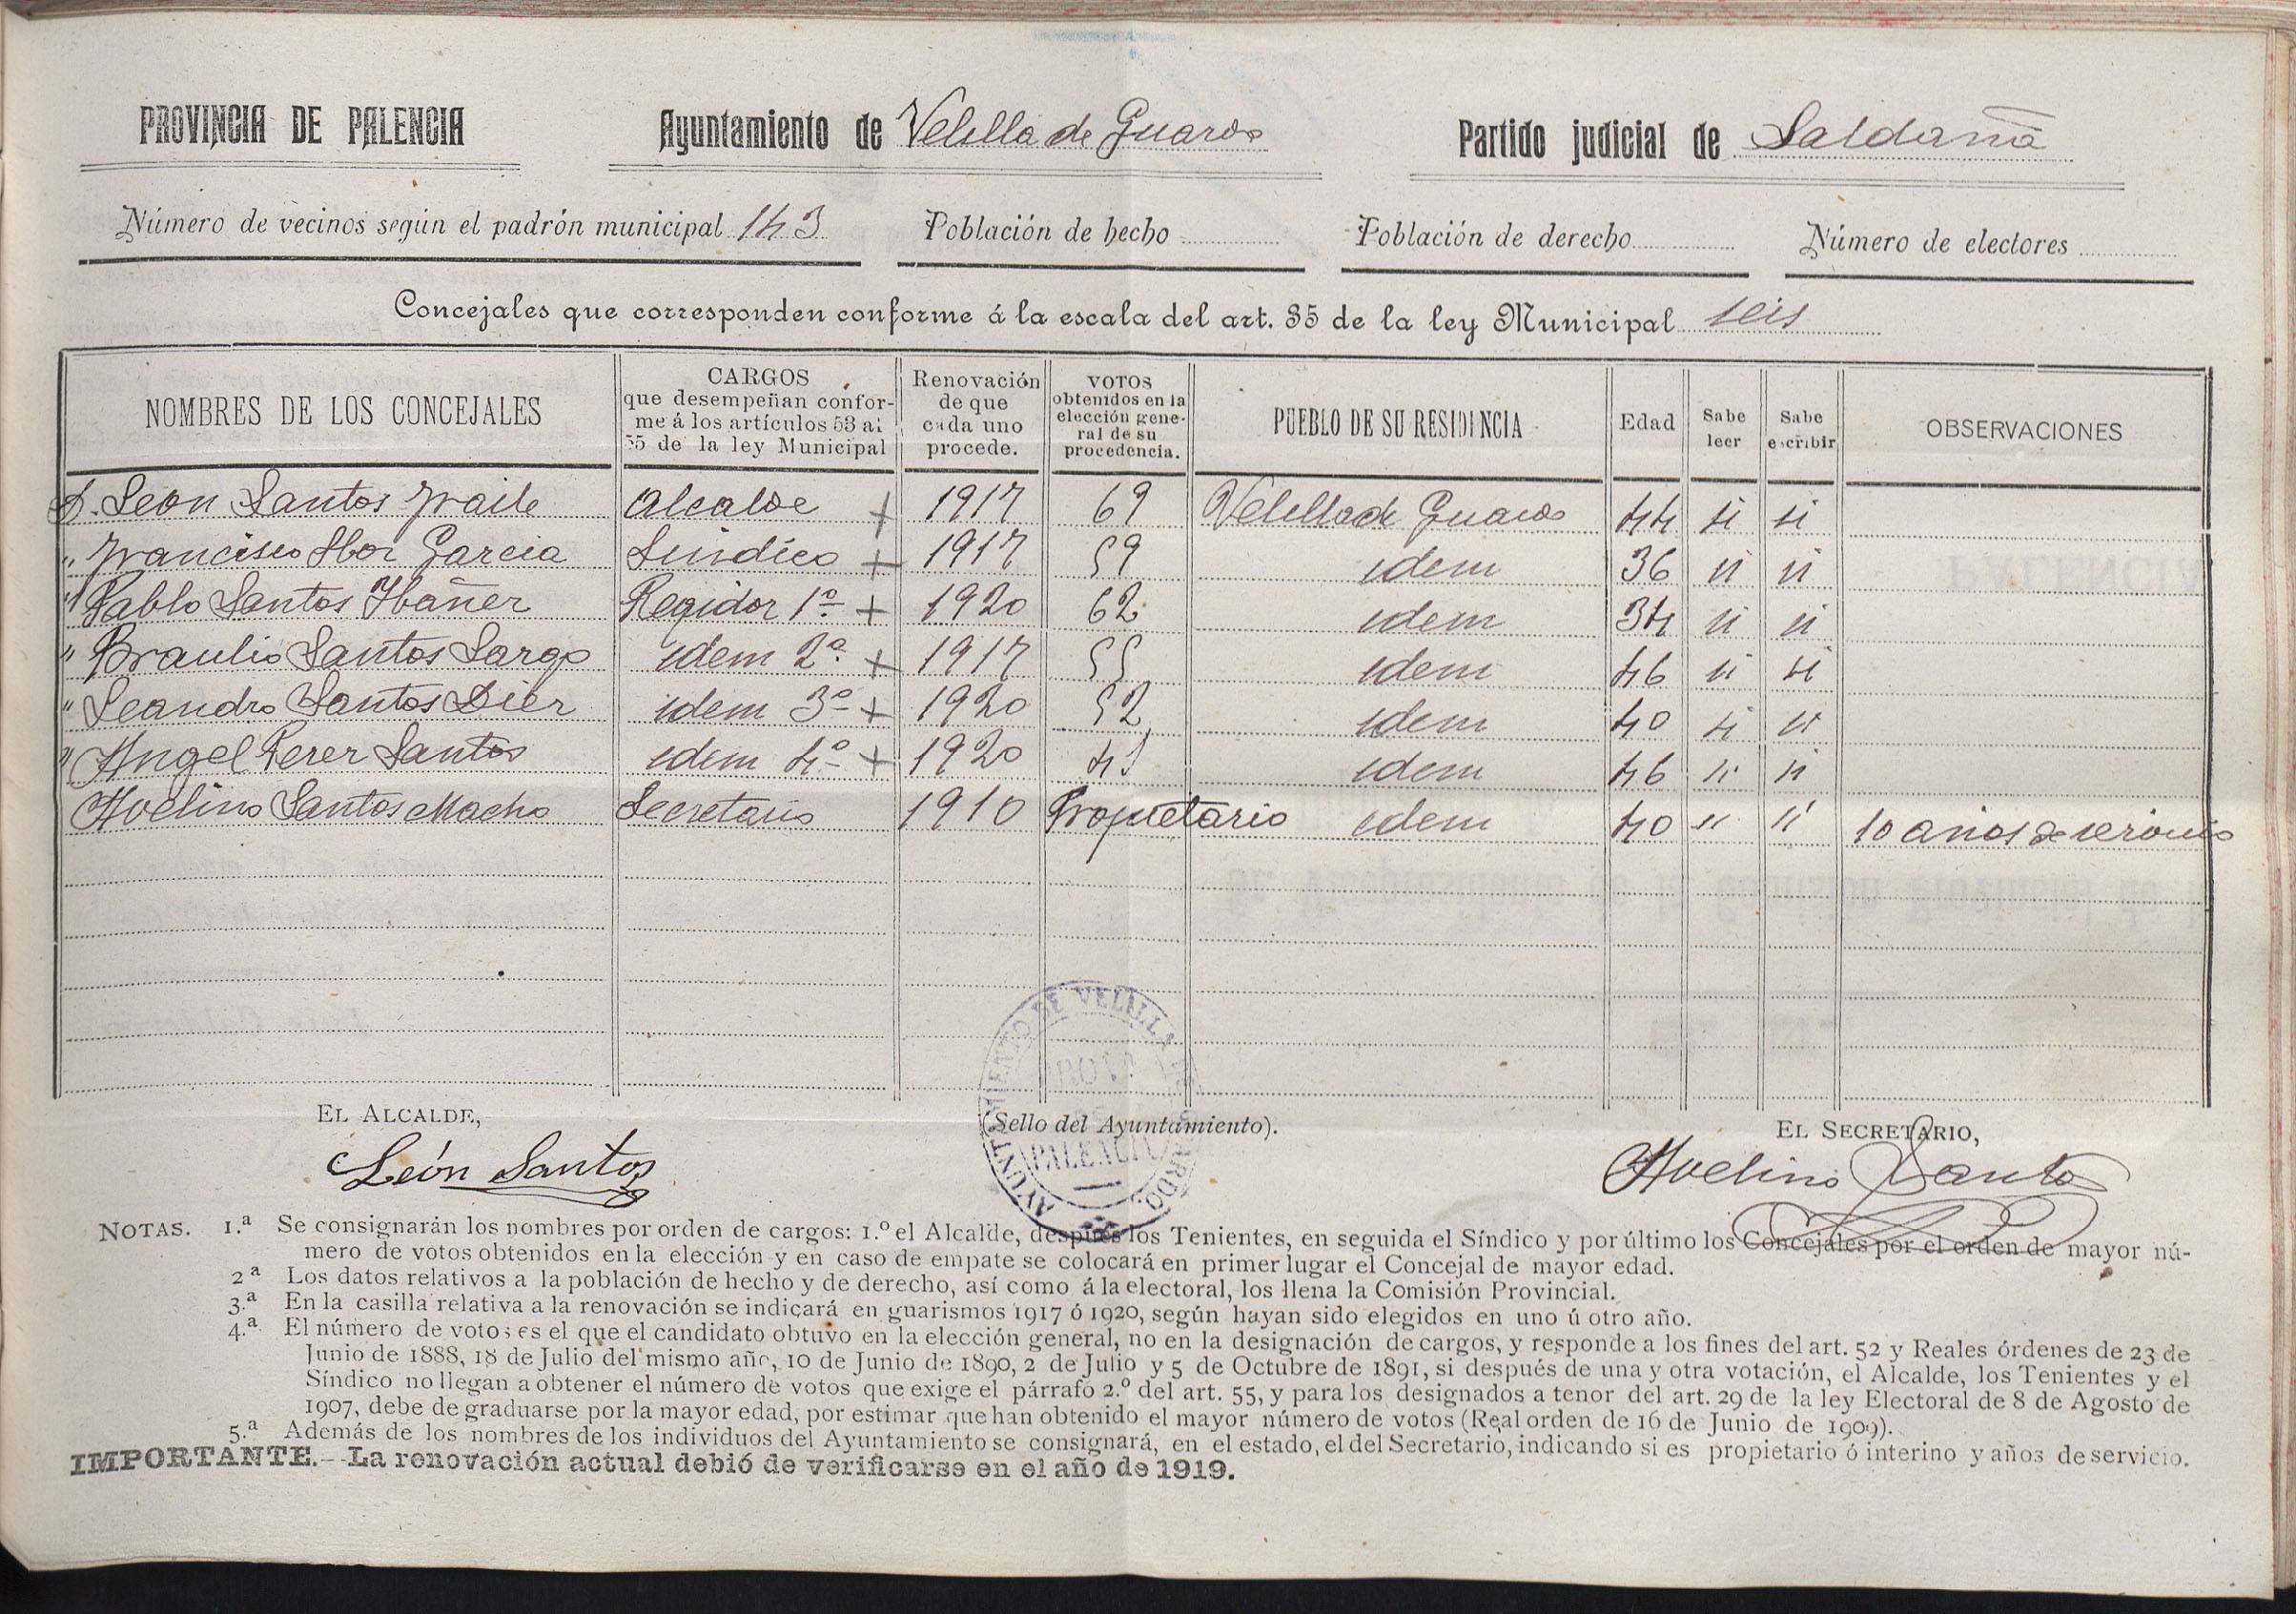 PROVINCIA DE PALENCIA Ayuntamiento de Velilla de Guardo Partido judicial de Saldaña
Número de vecinos según el padrón municipal 143 Población de hecho Población de derecho Número de electores
Concejales que corresponden conforme á la escala del art. 35 de la ley Municipal seis
NOMBRES DE LOS CONCEJALES CARGOS que desempeñan conforme á los artículos 53 al 55 de la ley Municipal Renovación de que cada uno procede. VOTOS obtenidos en la elección general de su procedencia. PUEBLO DE SU RESIDENCIA Edad Sabe leer Sabe escribir OBSERVACIONES
D. Leon Santos Fraile Alcalde + 1917 69 Velilla de Guardo 44 si si
" Francisco Hbor Garcia Sindico + 1917 59 idem 36 si si
" Pablo Santos Ybañez Regidor 1º + 1920 62 idem 34 si si
" Braulio Santos Largo idem 2º + 1917 55 idem 46 si si
" Leandro Santos Diez idem 3º + 1920 52 idem 40 si si
" Angel Perez Santos idem 4º + 1920 41 idem 46 si si
Avelino Santos Macho Secretario 1910 Propietario idem 40 si si 10 años de servicio
EL ALCALDE, (Sello del Ayuntamiento). EL SECRETARIO,
León Santos Avelino Santos
AYUNTAMIENTO DE VELILLA DE GUARDO
PROVA
PALENCIA
NOTAS. 1.ª Se consignarán los nombres por orden de cargos: 1.º el Alcalde, después los Tenientes, en seguida el Síndico y por último los Concejales por el orden de mayor nú-
mero de votos obtenidos en la elección y en caso de empate se colocará en primer lugar el Concejal de mayor edad.
2ª Los datos relativos a la población de hecho y de derecho, así como á la electoral, los llena la Comisión Provincial.
3.ª En la casilla relativa a la renovación se indicará en guarismos 1917 ó 1920, según hayan sido elegidos en uno ú otro año.
4.ª El número de votos es el que el candidato obtuvo en la elección general, no en la designación de cargos, y responde a los fines del art. 52 y Reales órdenes de 23 de
Junio de 1888, 18 de Julio del mismo año, 10 de Junio de 1890, 2 de Julio y 5 de Octubre de 1891, si después de una y otra votación, el Alcalde, los Tenientes y el
Síndico no llegan a obtener el número de votos que exige el párrafo 2.º del art. 55, y para los designados a tenor del art. 29 de la ley Electoral de 8 de Agosto de
1907, debe de graduarse por la mayor edad, por estimar que han obtenido el mayor número de votos (Real orden de 16 de Junio de 1909).
5.ª Además de los nombres de los individuos del Ayuntamiento se consignará, en el estado, el del Secretario, indicando si es propietario ó interino y años de servicio.
IMPORTANTE.--La renovación actual debió de verificarse en el año de 1919.